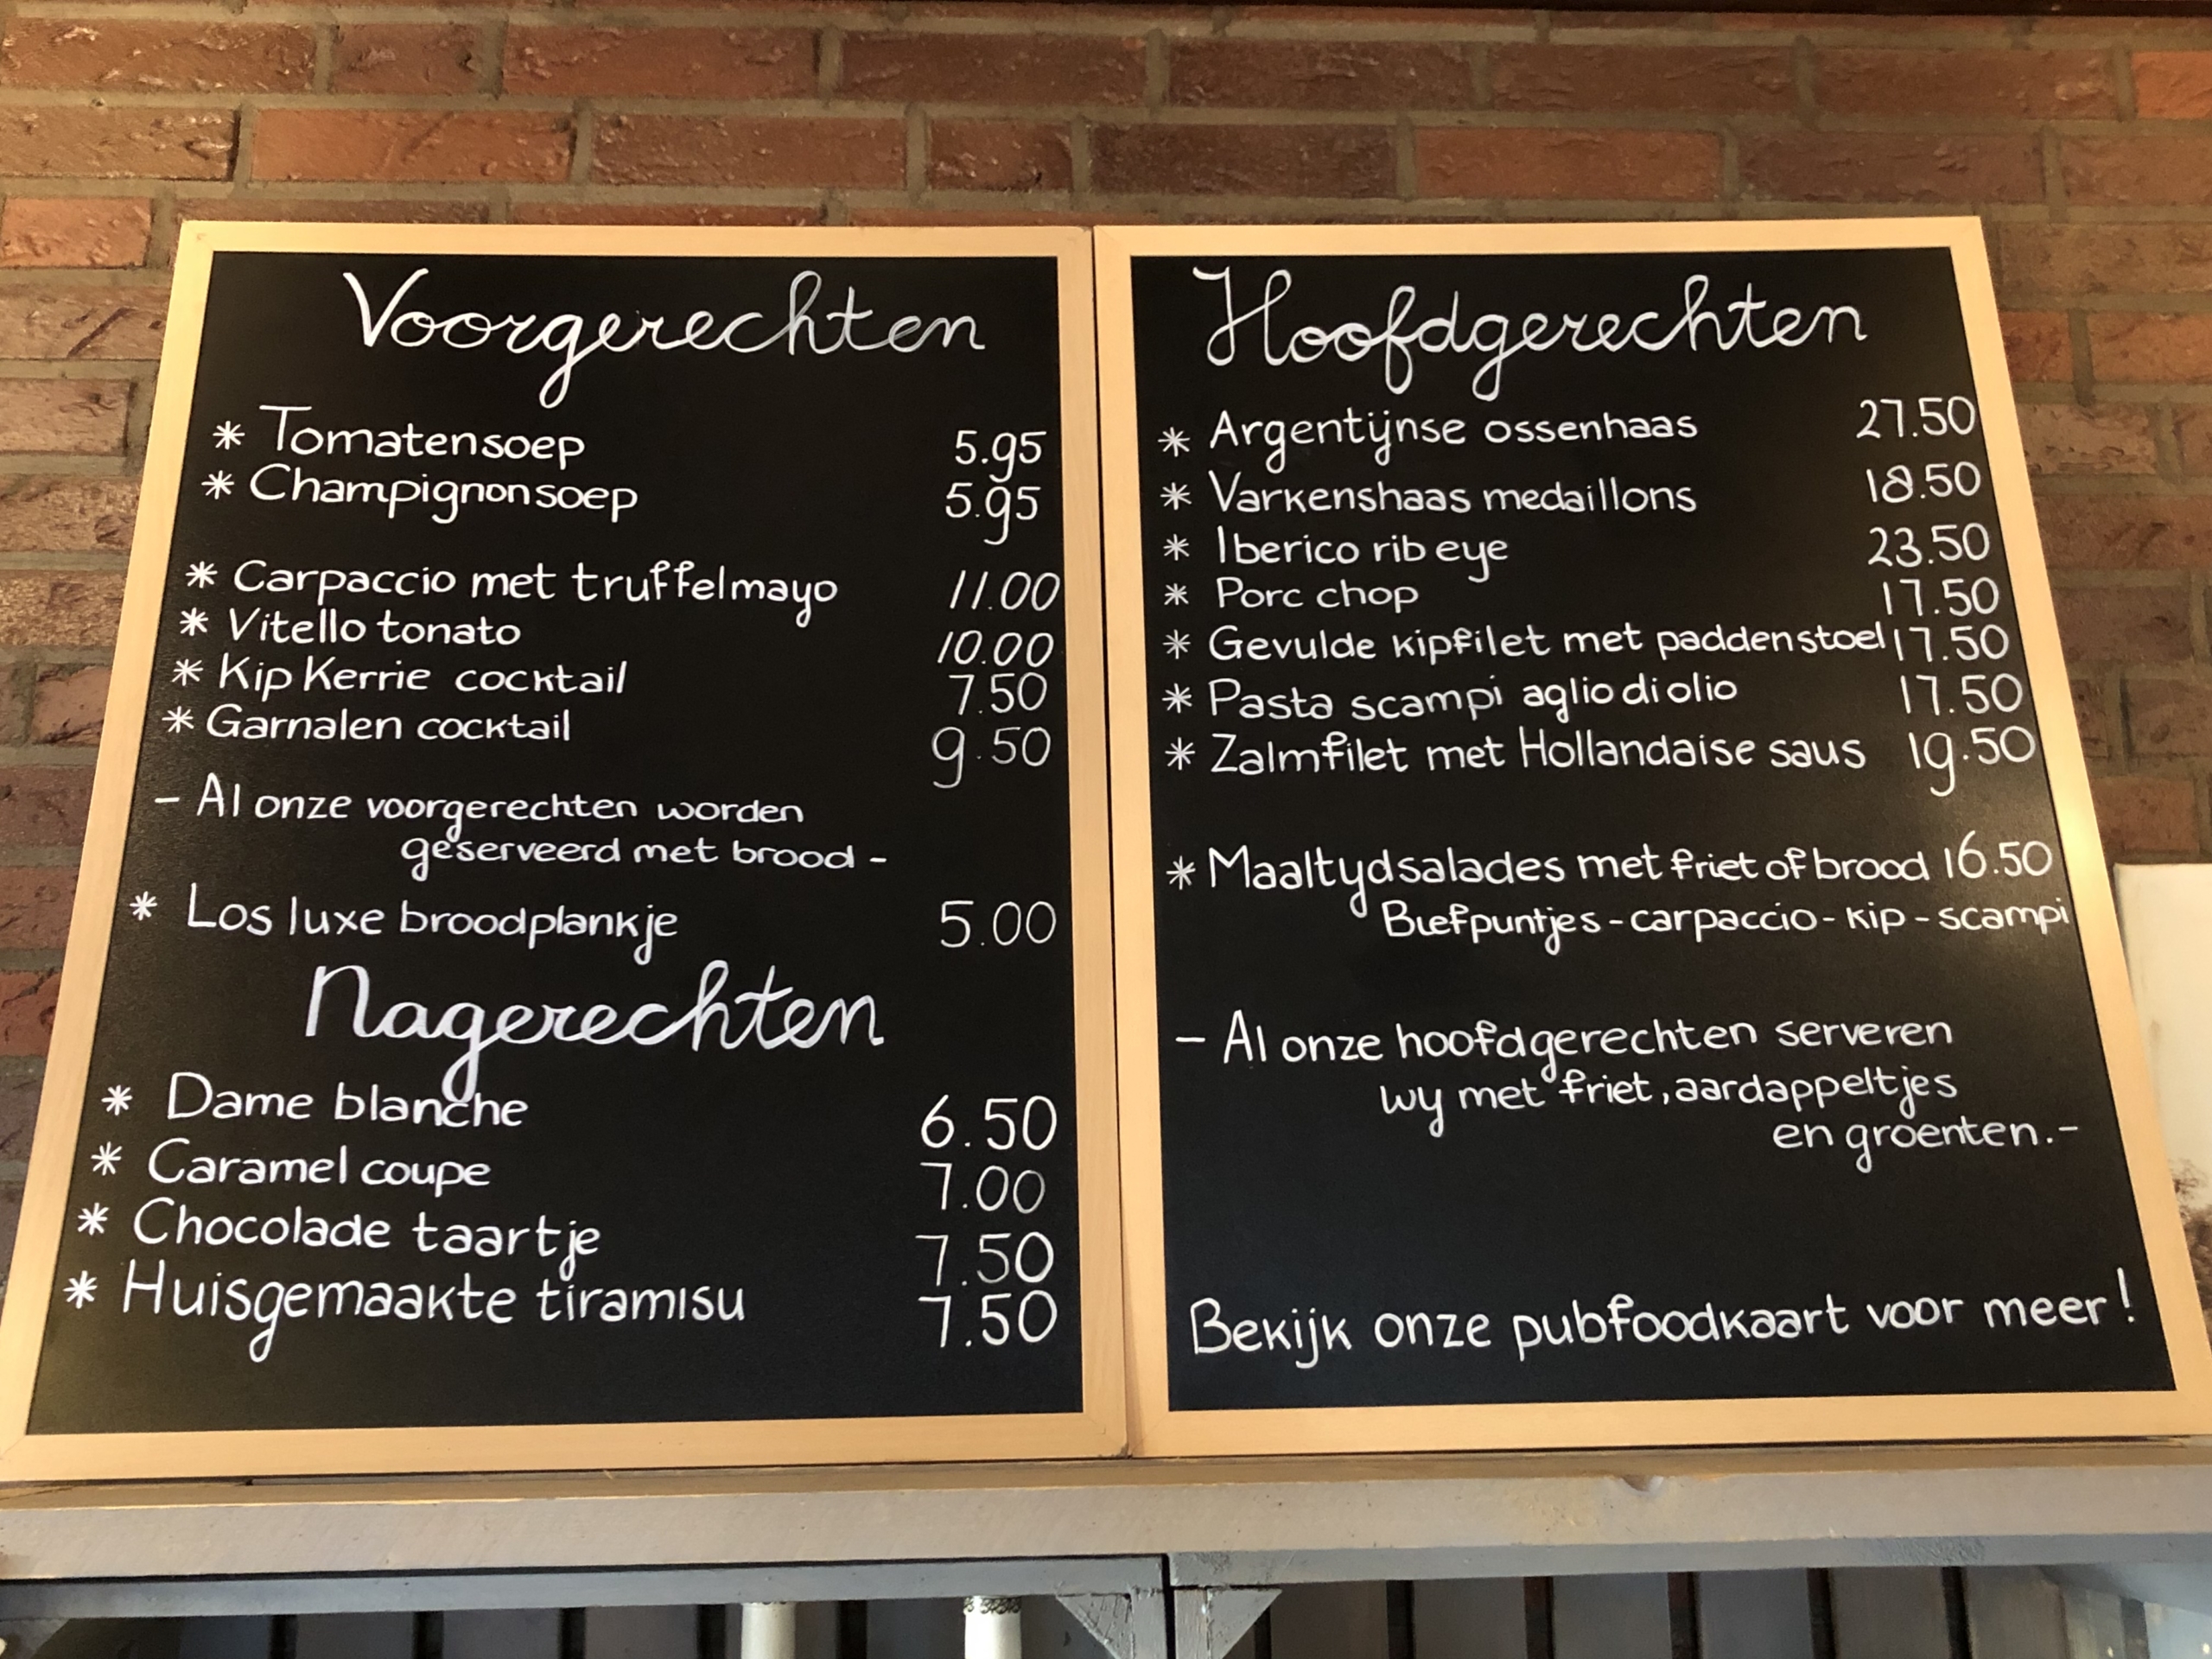 Voorgerechten
* Tomatensoep 5.95
* Champignonsoep 5.95
* Carpaccio met truffelmayo 11.00
* Vitello tonato 10.00
* Kip Kerrie cocktail 7.50
* Garnalen cocktail 9.50
- Al onze voorgerechten worden
geserveerd met brood -
* Los luxe broodplankje 5.00
Nagerechten
* Dame blanche 6.50
* Caramel coupe 7.00
* Chocolade taartje 7.50
* Huisgemaakte tiramisu 7.50
Hoofdgerechten
* Argentijnse ossenhaas 27.50
* Varkenshaas medaillons 18.50
* Iberico rib eye 23.50
* Porc chop 17.50
* Gevulde kipfilet met paddenstoel 17.50
* Pasta scampi aglio di olio 17.50
* Zalmfilet met Hollandaise saus 19.50
* Maaltydsalades met friet of brood 16.50
Biefpuntjes - carpaccio - kip - scampi
- Al onze hoofdgerechten serveren
wy met friet, aardappeltjes
en groenten.-
Bekijk onze pubfoodkaart voor meer!